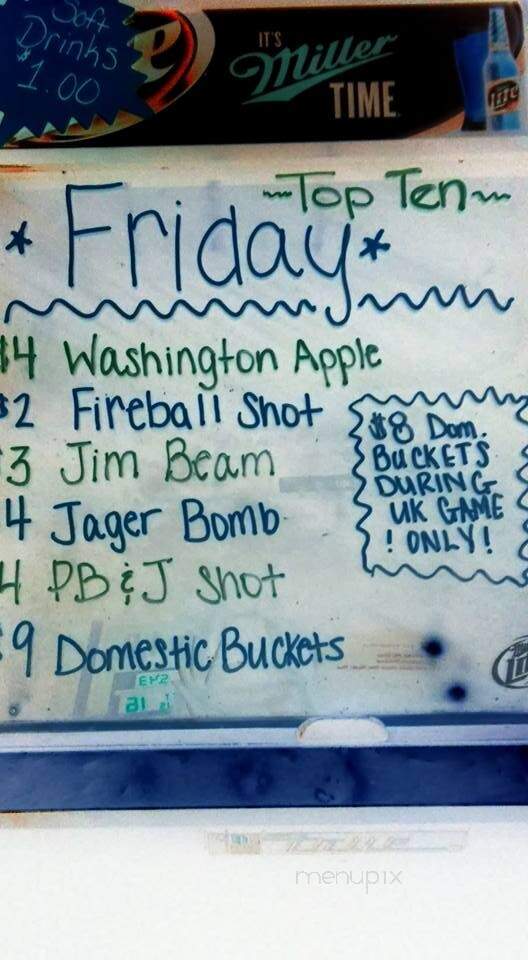 Soft
Drinks
$1.00
IT'S
Miller
TIME
Lite
~Top Ten~
* Friday *
$4 Washington Apple
$2 Fireball Shot
3 Jim Beam
4 Jager Bomb
4 PB & J Shot
$9 Domestic Buckets
$8 Dom.
BUCKETS
DURING
UK GAME
! ONLY!
menupix